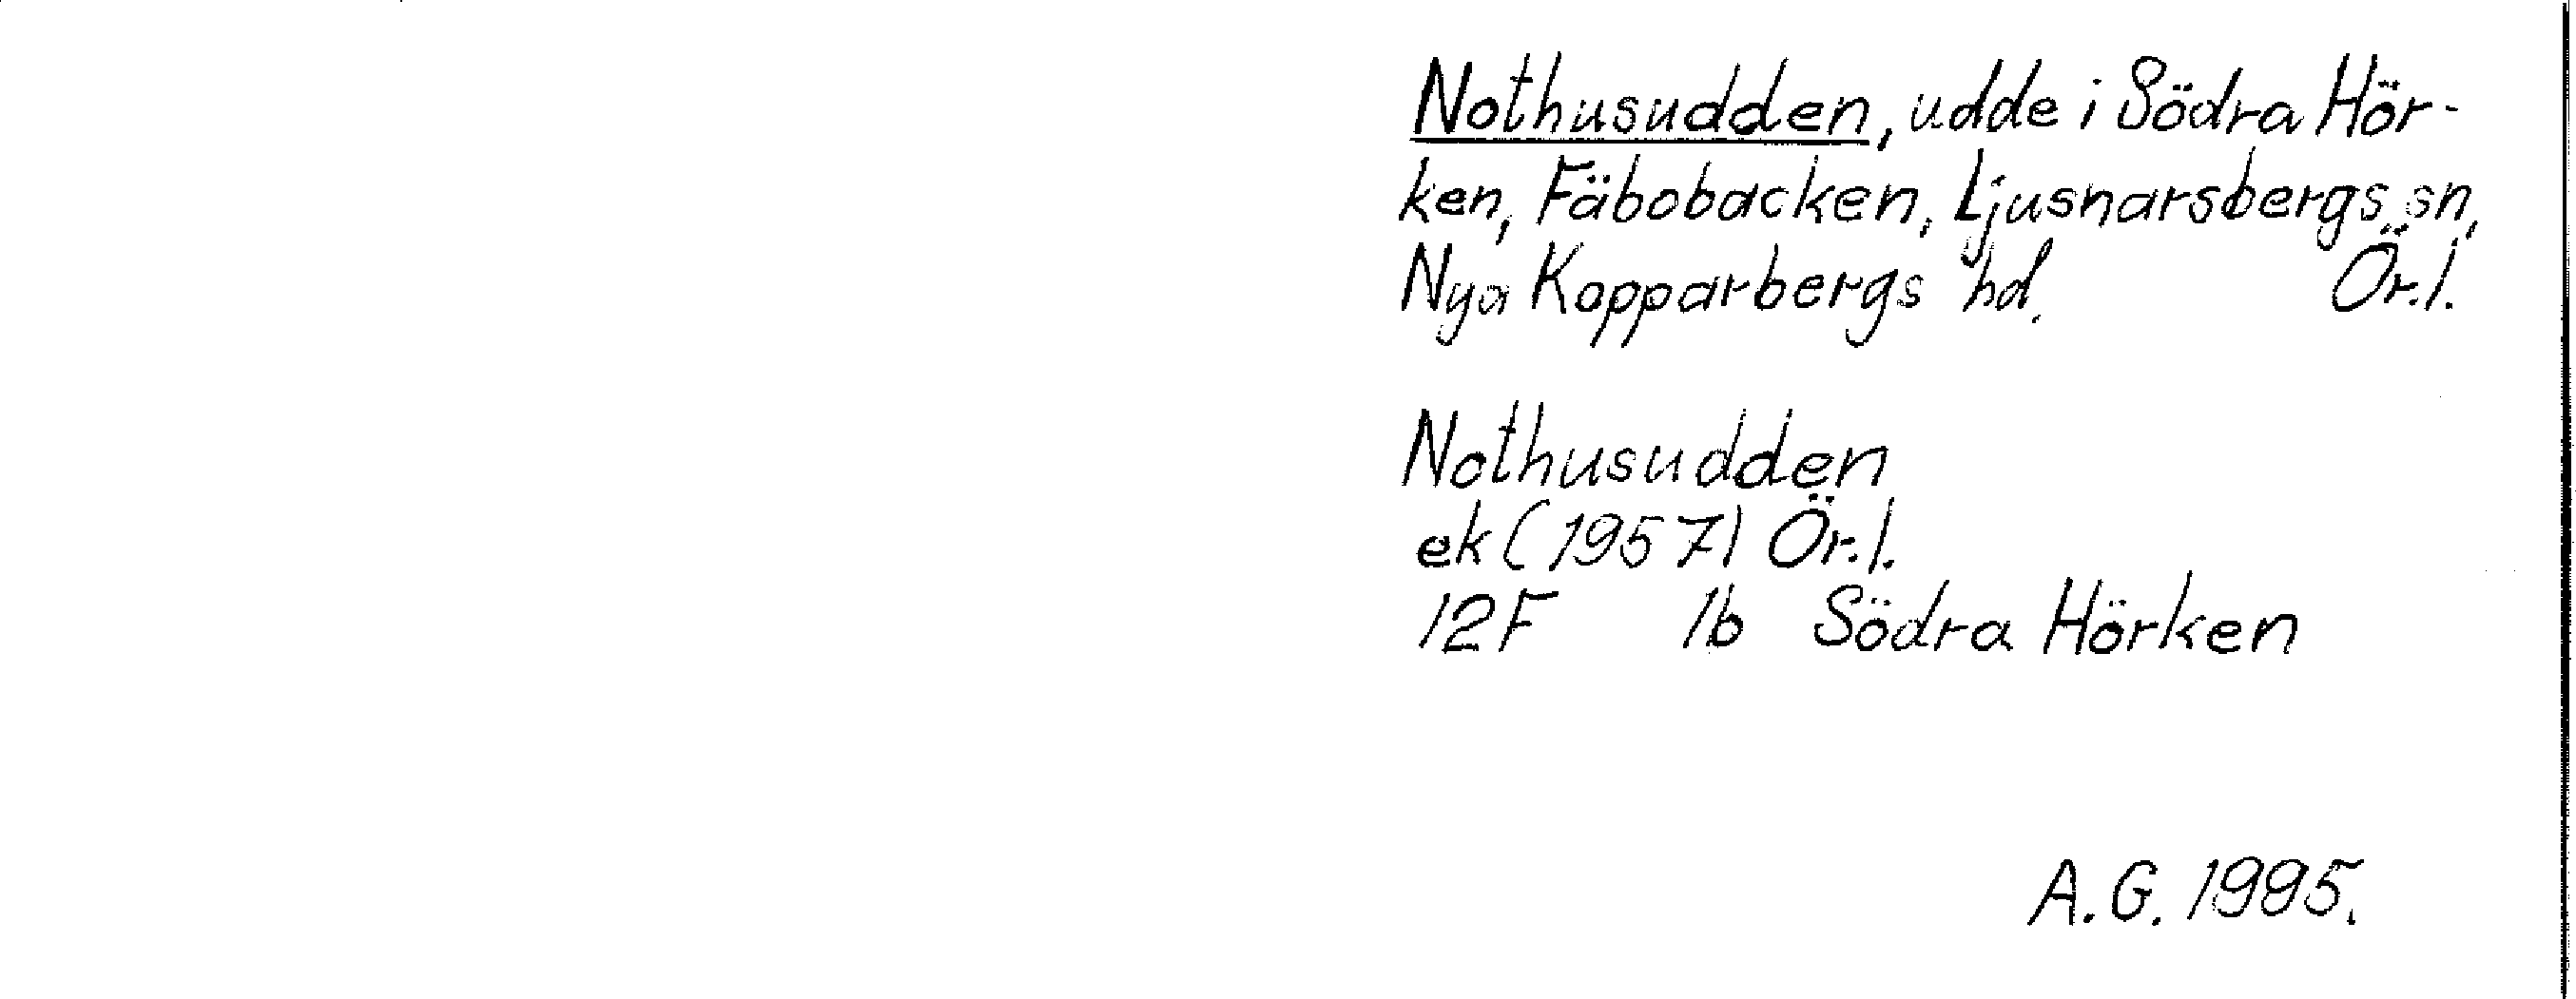 Nothusudden, udde i Södra Hör-
ken, Fäbobacken, Ljusnarsbergs sn,
Nya Kopparbergs hd. Ör.l.
Nothusudden
ek (1957) Ör.l.
12F 1b Södra Hörken
A.G. 1995.